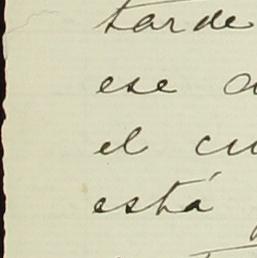 tarde
ese
el
está